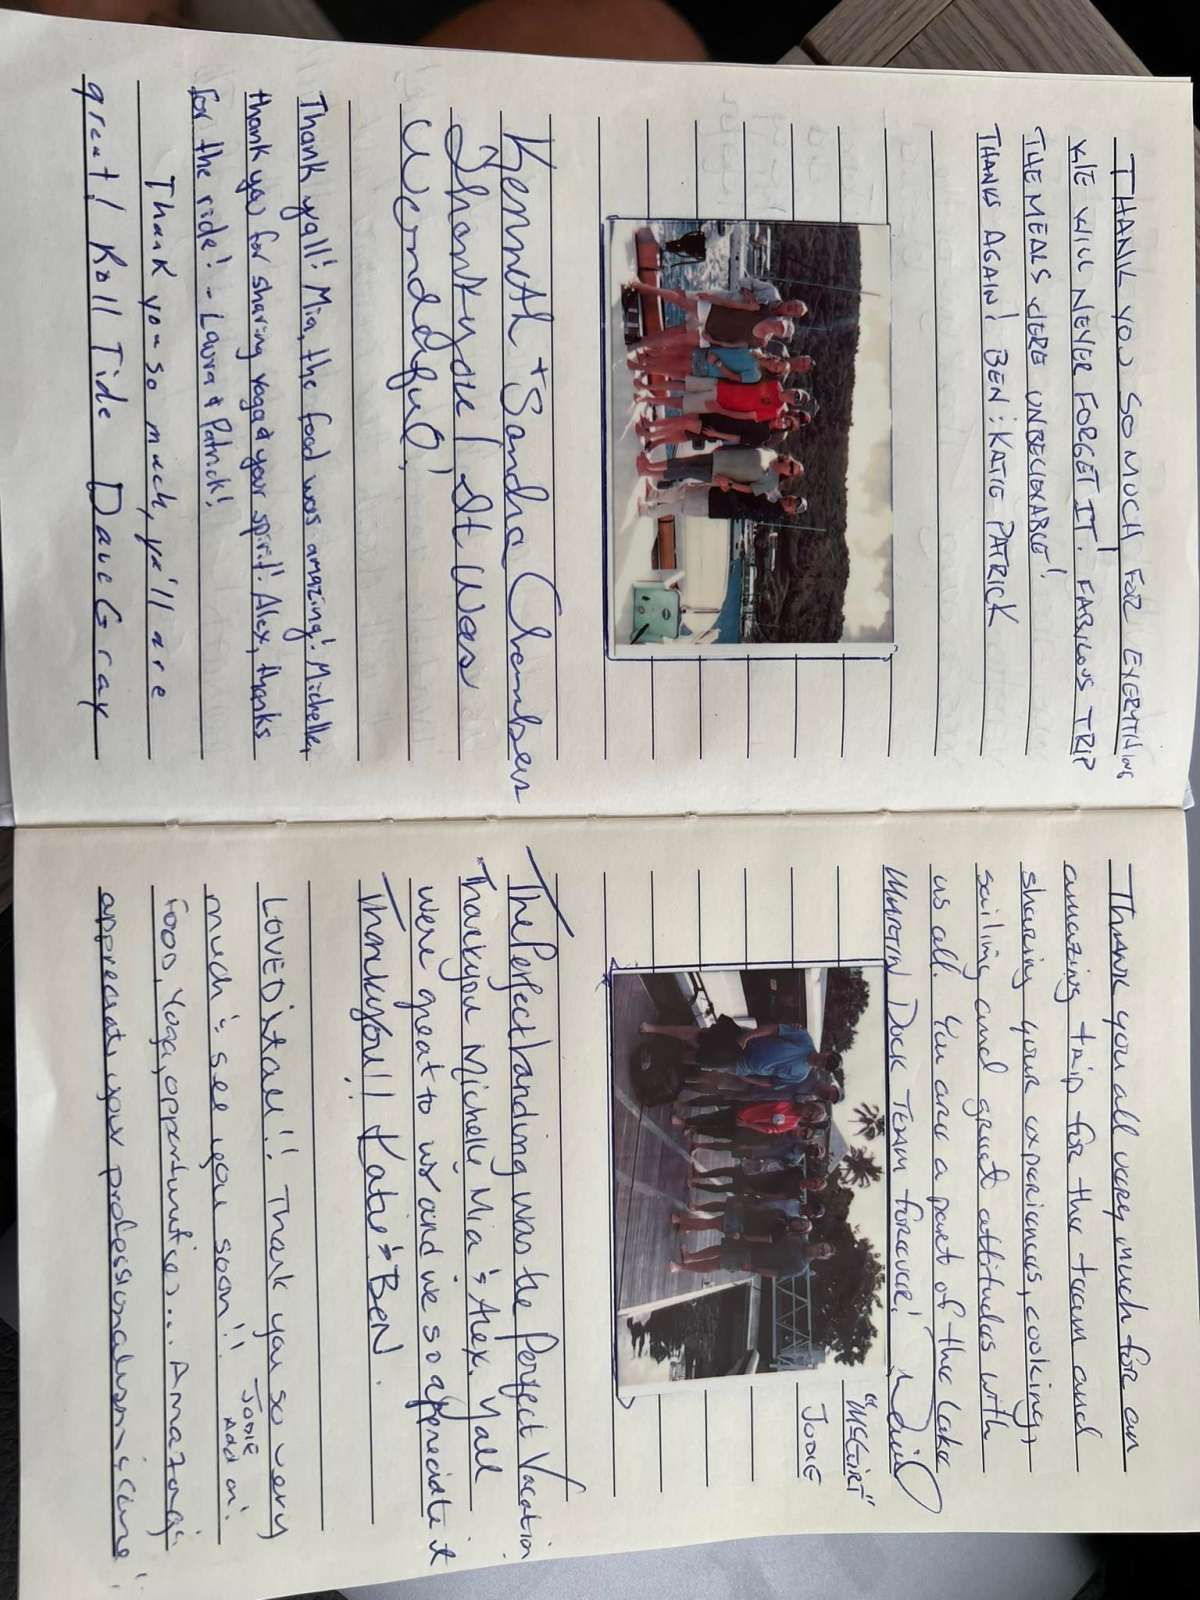 THANK YOU SO MUCH FOR EVERYTHING
WE WILL NEVER FORGET IT! FABULOUS TRIP
THE MEALS WERE UNBELIEVABLE!
THANKS AGAIN! BEN & KATIE PATRICK
Kenneth + Sandra Chambers
Thank you! It Was
Wonderful!
Thank yall! Mia, the food was amazing! Michelle,
thank you for sharing yoga & your spirit! Alex, thanks
for the ride! - Laura & Patrick!
Thank you so much, ya'll are
great! Roll Tide Dave Gray
Thank you all very much for an
amazing trip for the team and
sharing your experiences, cooking,
sailing and great attitudes with
us all. You are a part of the Lake
MARTIN Dock TEAM forever!
"McGIRT"
JODIE
The Perfect landing was the Perfect Vacation
Thankyou Michelle Mia & Alex. Yall
were great to us and we so apreciate it
Thankyou!! Katie & BEN.
LOVED it all!! Thank you so very
much & see you soon!! JODIE
Add on!
Food, Yoga, opportunities... Amazing!
appreciate your professionalism & care!